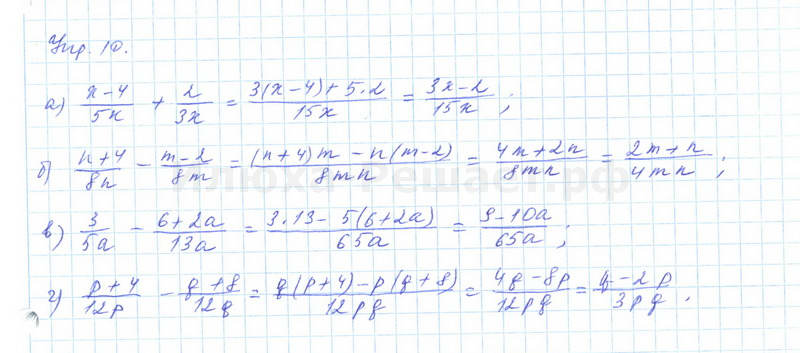 Упр. 10.
а) (x-4)/(5x) + 2/(3x) = (3(x-4)+5·2)/(15x) = (3x-2)/(15x);
б) (n+4)/(8n) - (m-2)/(8m) = ((n+4)m - n(m-2))/(8mn) = (4m+2n)/(8mn) = (2m+n)/(4mn);
в) 3/(5a) - (6+2a)/(13a) = (3·13-5(6+2a))/(65a) = (9-10a)/(65a);
г) (p+4)/(12p) - (q+8)/(12q) = (q(p+4)-p(q+8))/(12pq) = (4q-8p)/(12pq) = (q-2p)/(3pq).